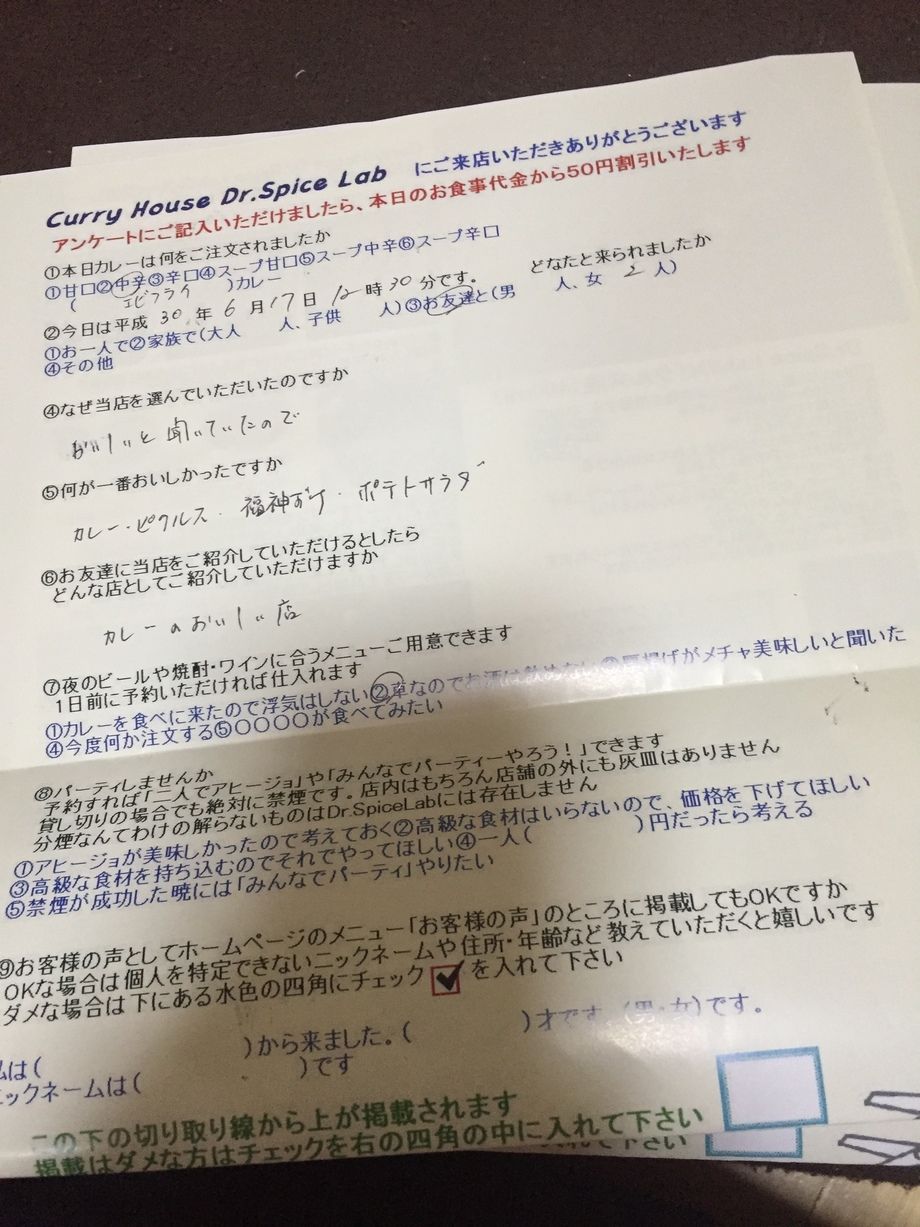 Curry House Dr.Spice Lab にご来店いただきありがとうございます
アンケートにご記入いただけましたら、本日のお食事代金から50円割引いたします
①本日カレーは何をご注文されましたか
①甘口②中辛③辛口④スープ甘口⑤スープ中辛⑥スープ辛口
( エビフライ )カレー
②今日は平成 30 年 6 月 17 日 12 時 30 分です。 どなたと来られましたか
①お一人で②家族で(大人 人、子供 人)③お友達と(男 人、女 2 人)
④その他
④なぜ当店を選んでいただいたのですか
おいしいと聞いていたので
⑤何が一番おいしかったですか
カレー・ピクルス・福神づけ・ポテトサラダ
⑥お友達に当店をご紹介していただけるとしたら
どんな店としてご紹介していただけますか
カレーのおいしい店
⑦夜のビールや焼酎・ワインに合うメニューご用意できます
1日前に予約いただければ仕入れます
①カレーを食べに来たので浮気はしない②車なのでお酒は飲めない③厚揚げがメチャ美味しいと聞いた
④今度何か注文する⑤〇〇〇〇が食べてみたい
⑧パーティしませんか
予約すれば「二人でアヒージョ」や「みんなでパーティーやろう!」できます
貸し切りの場合でも絶対に禁煙です。店内はもちろん店舗の外にも灰皿はありません
分煙なんてわけの解らないものはDr.SpiceLabには存在しません
①アヒージョが美味しかったので考えておく②高級な食材はいらないので、価格を下げてほしい
③高級な食材を持ち込むのでそれでやってほしい④一人( )円だったら考える
⑤禁煙が成功した暁には「みんなでパーティ」やりたい
⑨お客様の声としてホームページのメニュー「お客様の声」のところに掲載してもOKですか
OKな場合は個人を特定できないニックネームや住所・年齢など教えていただくと嬉しいです
ダメな場合は下にある水色の四角にチェック を入れて下さい
は( )から来ました。( )才です。(男・女)です。
ックネームは( )です
この下の切り取り線から上が掲載されます
掲載はダメな方はチェックを右の四角の中に入れて下さい
入れて下さい